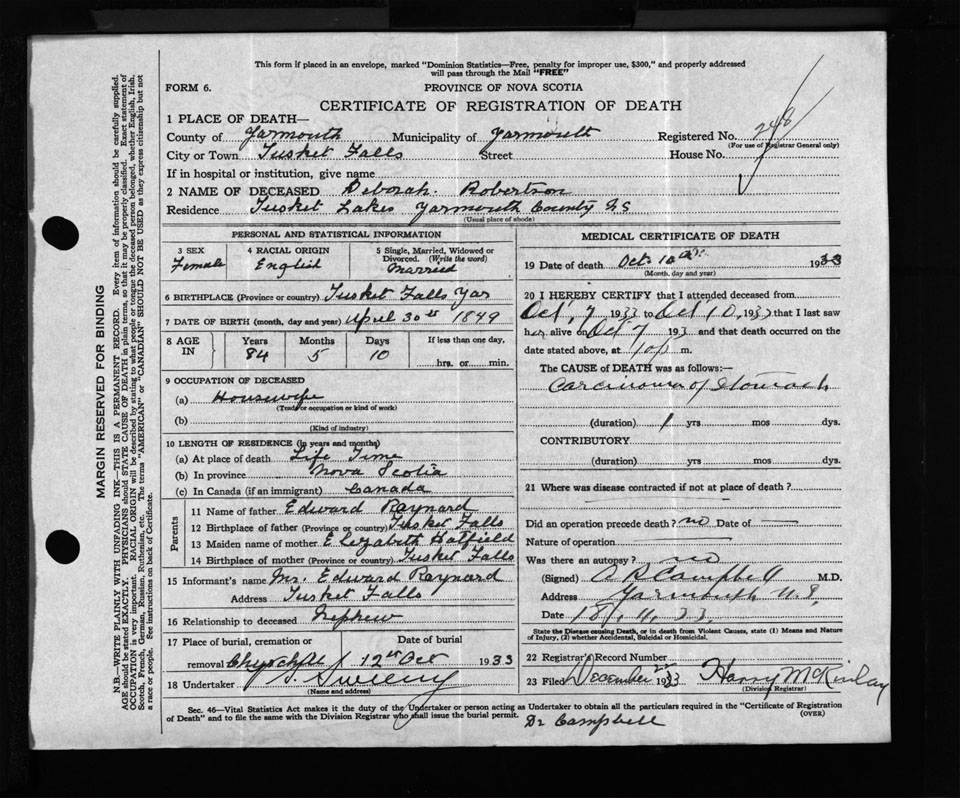 This form if placed in an envelope, marked "Dominion Statistics—Free, penalty for improper use, $300," and properly addressed
will pass through the Mail "FREE"
FORM 6.
PROVINCE OF NOVA SCOTIA
CERTIFICATE OF REGISTRATION OF DEATH
1 PLACE OF DEATH—
County of Yarmouth Municipality of Yarmouth Registered No. 248
(For use of Registrar General only)
City or Town Tusket Falls Street House No.
If in hospital or institution, give name
2 NAME OF DECEASED Deborah. Robertson
Residence Tusket Lakes Yarmouth County N.S
(Usual place of abode)
PERSONAL AND STATISTICAL INFORMATION
3 SEX
Female
4 RACIAL ORIGIN
English
5 Single, Married, Widowed or
Divorced. (Write the word)
Married
6 BIRTHPLACE (Province or country) Tusket Falls Yar
7 DATE OF BIRTH (month, day and year) April 30th 1849
8 AGE IN
Years Months Days If less than one day,
84 5 10 hrs. or min.
9 OCCUPATION OF DECEASED
(a) Housewife
(Trade or occupation or kind of work)
(b)
(Kind of industry)
10 LENGTH OF RESIDENCE (in years and months)
(a) At place of death Life Time
(b) In province Nova Scotia
(c) In Canada (if an immigrant) Canada
Parents
11 Name of father Edward Raynard
12 Birthplace of father (Province or country) Tusket Falls
13 Maiden name of mother Elizabeth Hatfield
14 Birthplace of mother (Province or country) Tusket Falls
15 Informant's name Mr. Edward Raynard
Address Tusket Falls
16 Relationship to deceased Nephew
17 Place of burial, cremation or Date of burial
removal 12th Oct 1933
18 Undertaker Sweeny
(Name and address)
MEDICAL CERTIFICATE OF DEATH
19 Date of death Oct 10th 1933
(Month, day and year)
20 I HEREBY CERTIFY that I attended deceased from
Oct, 7 1933 to Oct 10, 1933 that I last saw
her alive on Oct 7 193 and that death occurred on
date stated above, at 10 p m.
The CAUSE of DEATH was as follows:—
Carcinoma of Stomach
(duration) 1 yrs mos dys.
CONTRIBUTORY
(duration) yrs. mos. dys.
21 Where was disease contracted if not at place of death?
Did an operation precede death? no Date of —
Nature of operation
Was there an autopsy? no
(Signed) A R Campbell M.D.
Address Yarmouth N.S.
Date 18, 11, 33
State the Disease causing Death, or in death from Violent Causes, state (1) Means and Nature
of Injury, (2) whether Accidental, Suicidal or Homicidal.
22 Registrar's Record Number
23 Filed December 1933 Harry McKinlay
(Division Registrar)
Sec. 46—Vital Statistics Act makes it the duty of the Undertaker or person acting as Undertaker to obtain all the particulars required in the "Certificate of Registration
of Death" and to file the same with the Division Registrar who shall issue the burial permit.
(OVER)
Dr Campbell
MARGIN RESERVED FOR BINDING
N.B.—WRITE PLAINLY WITH UNFADING INK—THIS IS A PERMANENT RECORD. Every item of information should be carefully supplied.
AGE should be stated EXACTLY. PHYSICIANS should STATE CAUSE OF DEATH in plain terms, so that it may be properly classified. Exact statement of
OCCUPATION is very important. RACIAL ORIGIN will be described by stating to what people or tongue the deceased person belonged, whether English, Irish,
Scotch, French, German, Russian, Ruthenian, etc. The terms "AMERICAN" or "CANADIAN" SHOULD NOT BE USED as they express citizenship but not
a race or people. See instructions on back of Certificate.